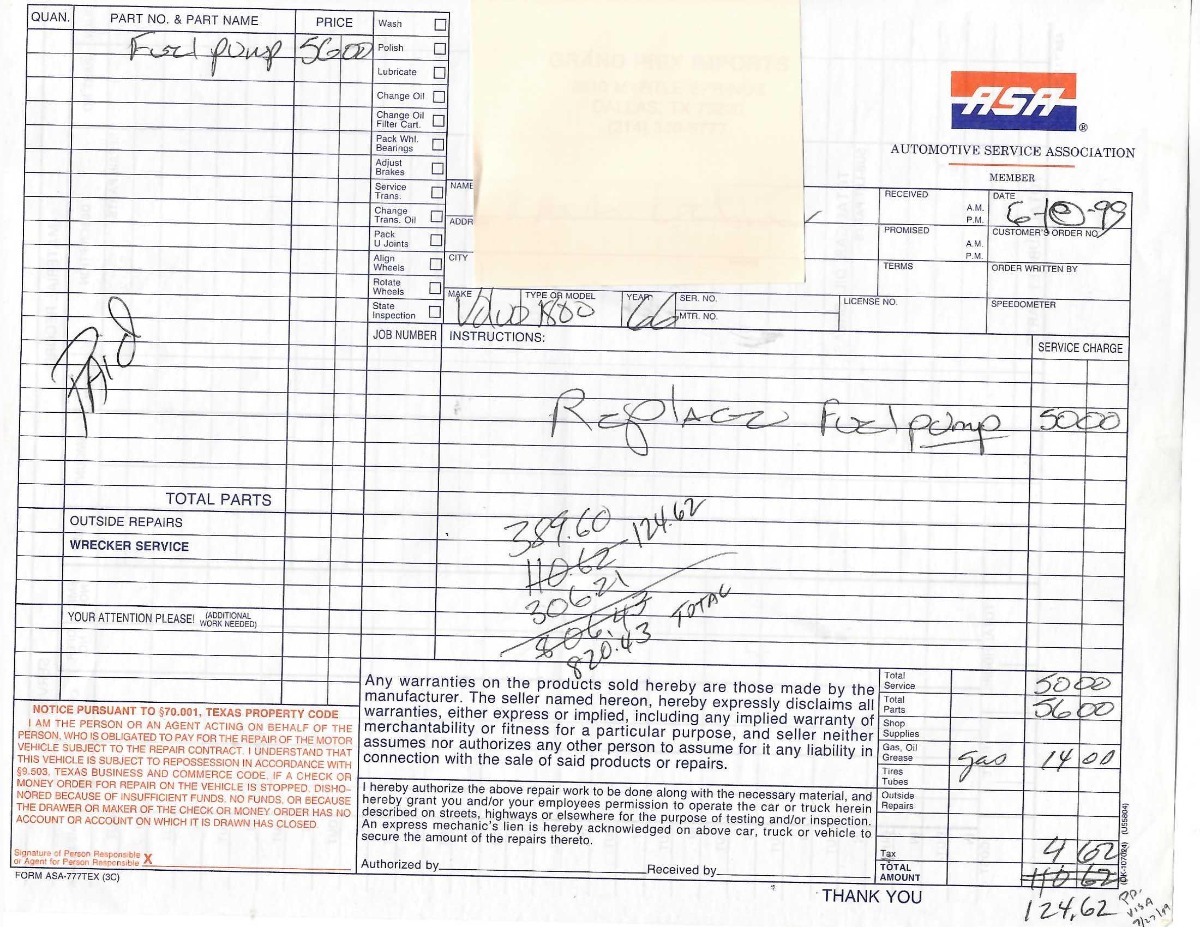 QUAN. PART NO. & PART NAME PRICE
Fuel pump 56 00
Wash
Polish
Lubricate
Change Oil
Change Oil
Filter Cart.
Pack Whl.
Bearings
Adjust
Brakes
Service
Trans.
Change
Trans. Oil
Pack
U Joints
Align
Wheels
Rotate
Wheels
State
Inspection
ASA ®
AUTOMOTIVE SERVICE ASSOCIATION
MEMBER
NAME
ADDR
CITY
RECEIVED
A.M.
P.M.
DATE
6-10-99
PROMISED
A.M.
P.M.
CUSTOMER'S ORDER NO.
TERMS
ORDER WRITTEN BY
MAKE Volvo TYPE OR MODEL 1800 YEAR 66 SER. NO.
MTR. NO.
LICENSE NO.
SPEEDOMETER
JOB NUMBER INSTRUCTIONS: SERVICE CHARGE
PAID
Replaced Fuel pump 50 00
TOTAL PARTS
OUTSIDE REPAIRS
WRECKER SERVICE
YOUR ATTENTION PLEASE! (ADDITIONAL
WORK NEEDED)
389.60
110.62 124.62
306.21
806.43
820.43 TOTAL
NOTICE PURSUANT TO §70.001, TEXAS PROPERTY CODE
I AM THE PERSON OR AN AGENT ACTING ON BEHALF OF THE
PERSON, WHO IS OBLIGATED TO PAY FOR THE REPAIR OF THE MOTOR
VEHICLE SUBJECT TO THE REPAIR CONTRACT. I UNDERSTAND THAT
THIS VEHICLE IS SUBJECT TO REPOSSESSION IN ACCORDANCE WITH
§9.503, TEXAS BUSINESS AND COMMERCE CODE, IF A CHECK OR
MONEY ORDER FOR REPAIR ON THE VEHICLE IS STOPPED, DISHO-
NORED BECAUSE OF INSUFFICIENT FUNDS, NO FUNDS, OR BECAUSE
THE DRAWER OR MAKER OF THE CHECK OR MONEY ORDER HAS NO
ACCOUNT OR ACCOUNT ON WHICH IT IS DRAWN HAS CLOSED.
Signature of Person Responsible
or Agent for Person Responsible X
FORM ASA-777TEX (3C)
Any warranties on the products sold hereby are those made by the
manufacturer. The seller named hereon, hereby expressly disclaims all
warranties, either express or implied, including any implied warranty of
merchantability or fitness for a particular purpose, and seller neither
assumes nor authorizes any other person to assume for it any liability in
connection with the sale of said products or repairs.
I hereby authorize the above repair work to be done along with the necessary material, and
hereby grant you and/or your employees permission to operate the car or truck herein
described on streets, highways or elsewhere for the purpose of testing and/or inspection.
An express mechanic's lien is hereby acknowledged on above car, truck or vehicle to
secure the amount of the repairs thereto.
Authorized by Received by
Total
Service 50 00
Total
Parts 56 00
Shop
Supplies
Gas, Oil
Grease gas 14 00
Tires
Tubes
Outside
Repairs
Tax 4 62
TOTAL
AMOUNT 110 62
124.62
PD.
VISA
THANK YOU